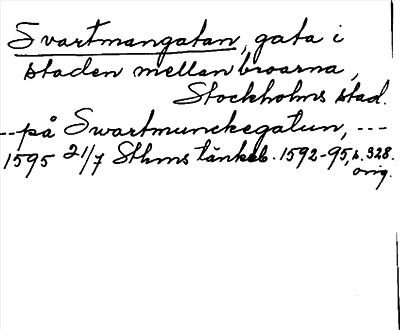 Svartmangatan, gata i
staden mellan broarna,
Stockholms stad.
--på Swartmunckegatun, ---
1595 21/7 Sthms tänkeb. 1592-95, s. 328.
orig.